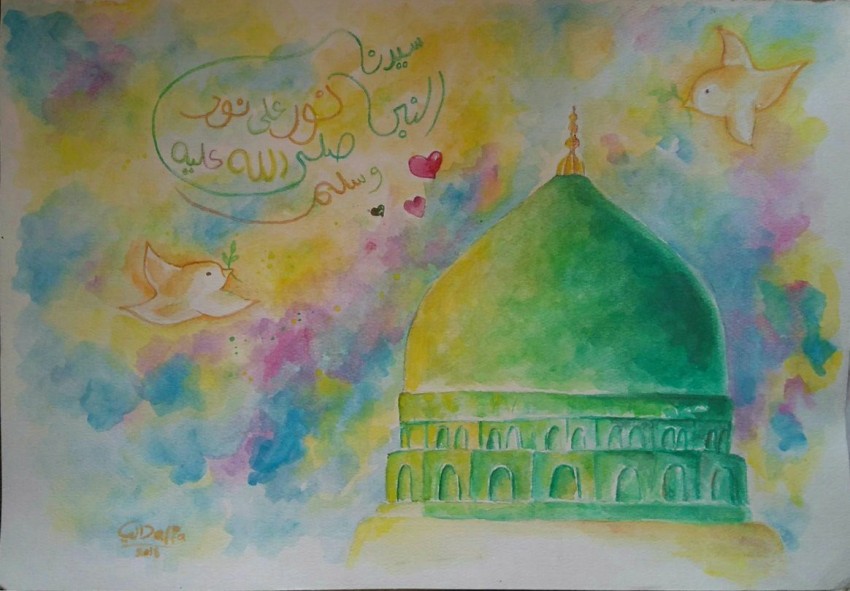 سيدنا
النبي
نور على نور
صلى الله عليه
وسلم
Daffa
2018